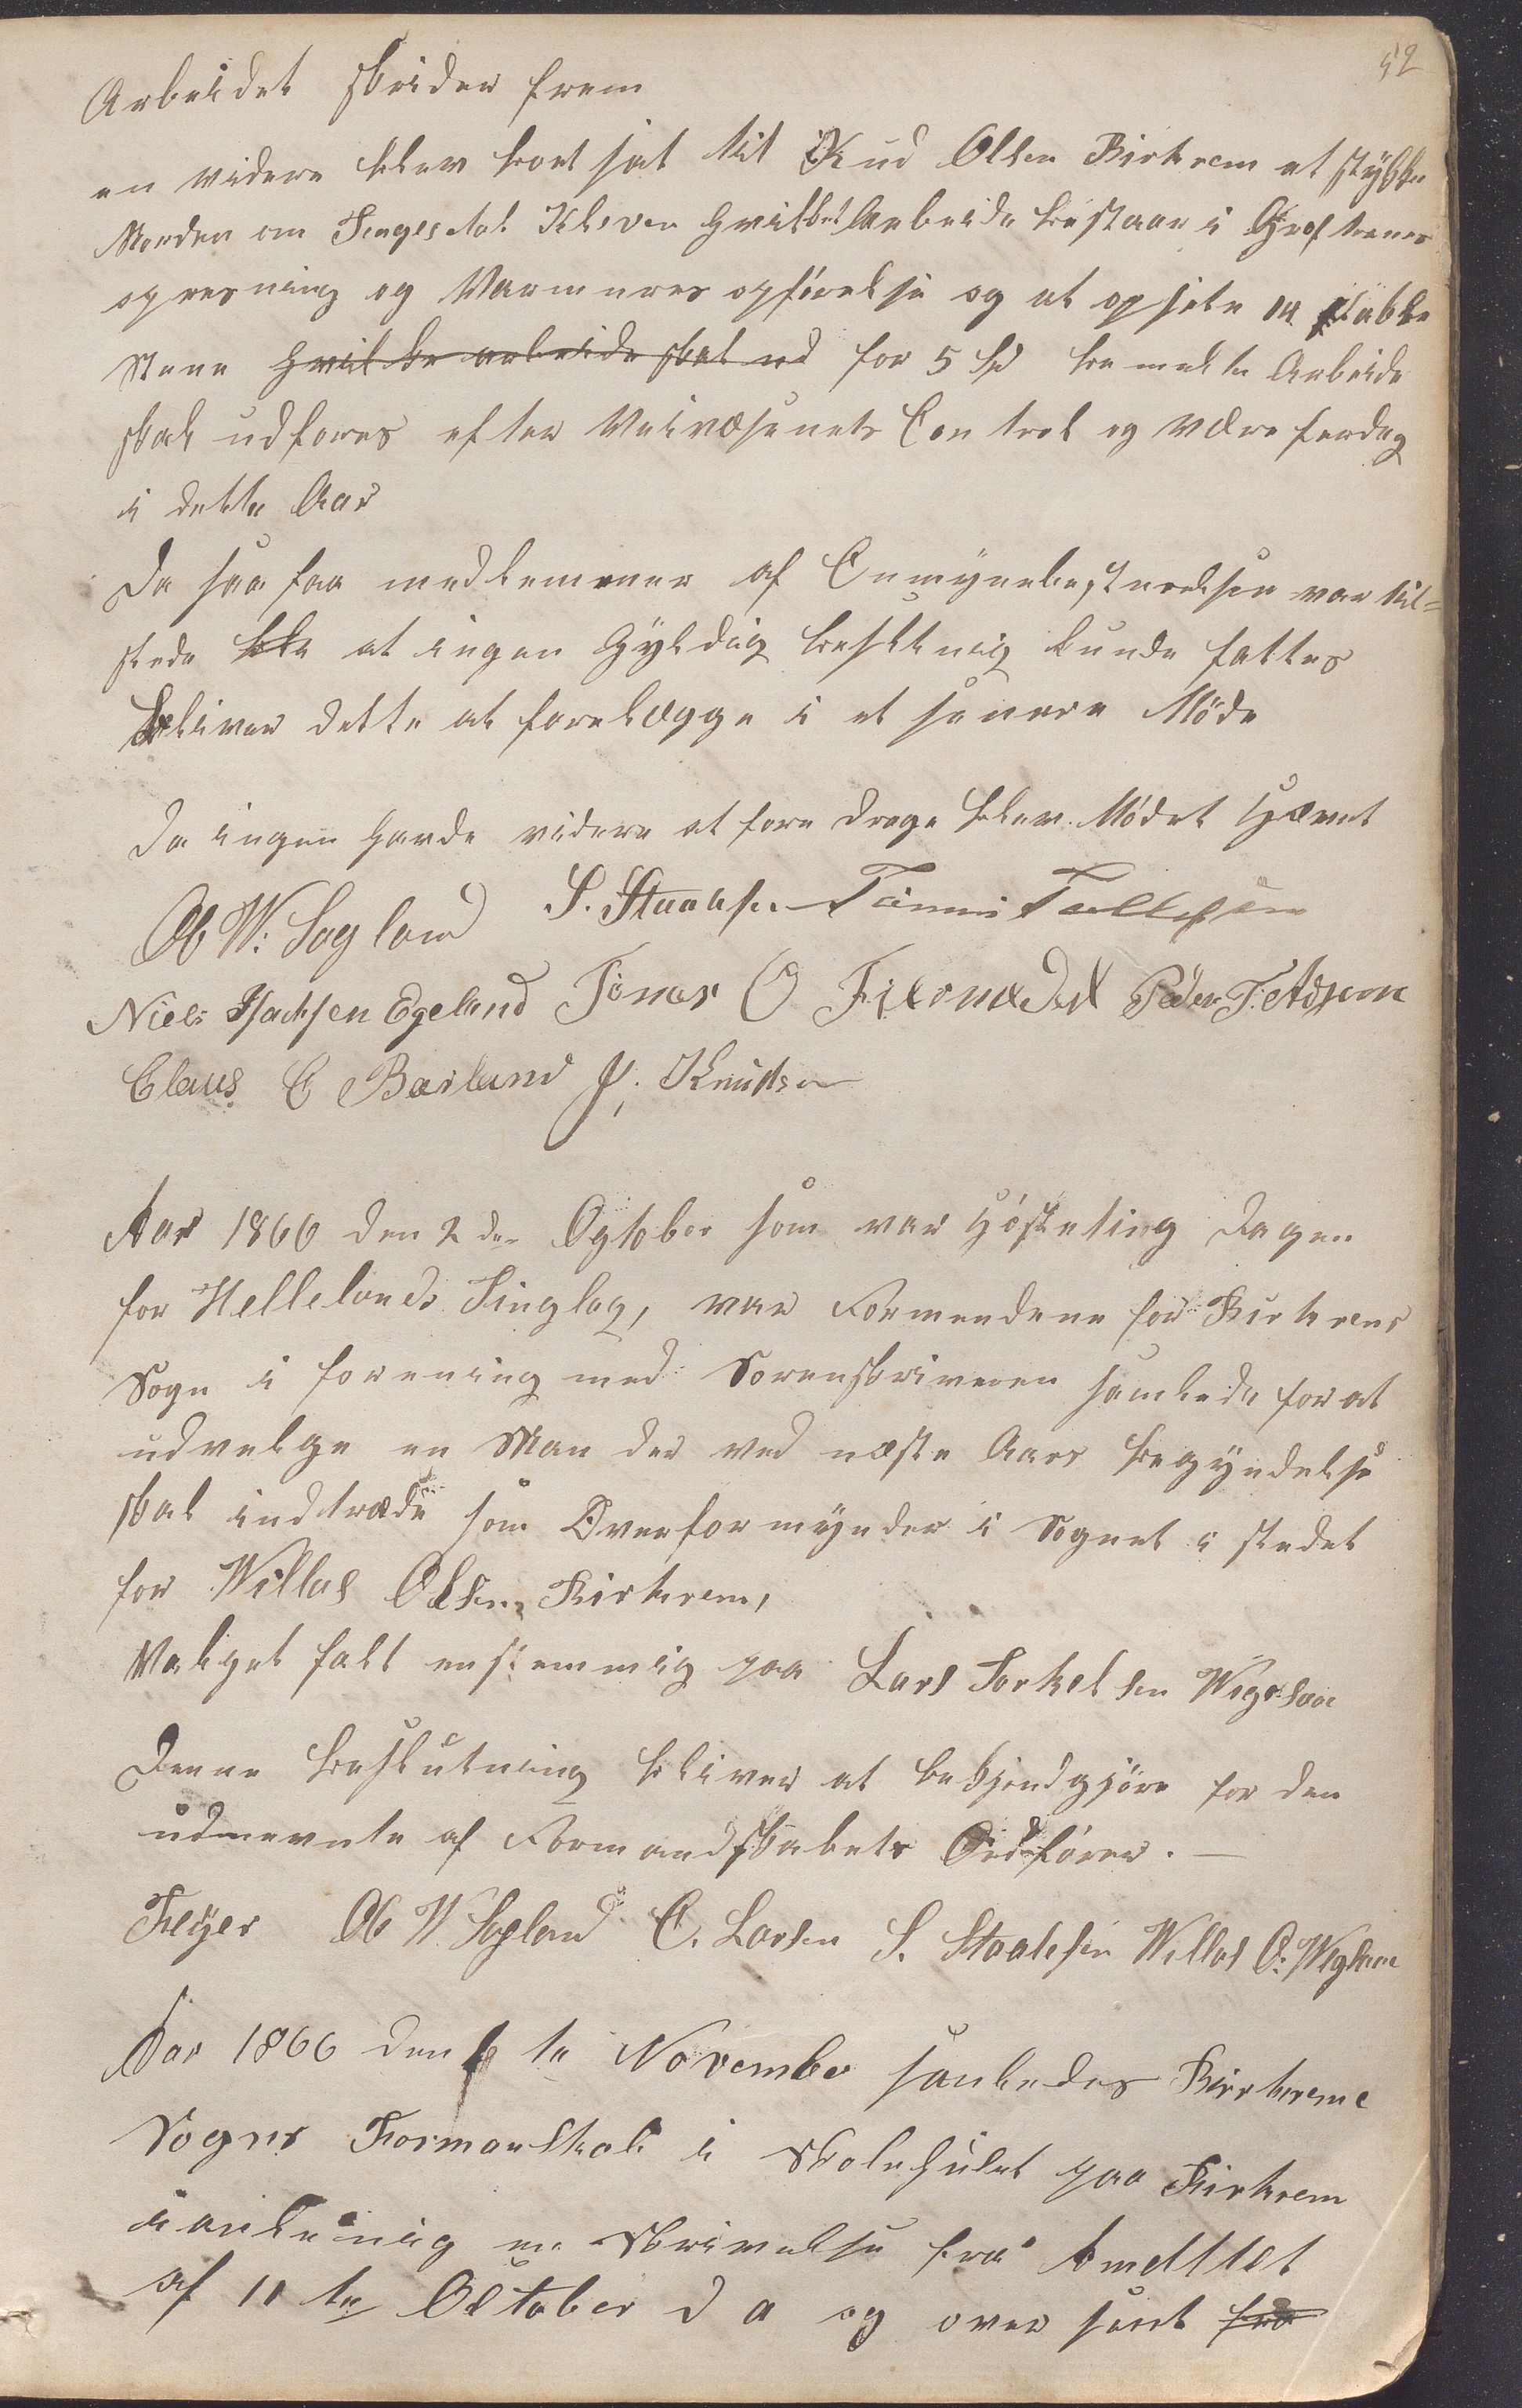 52
Arbeidet skrider frem
en videre blev bort sat til Knud Olsen Birkrem et stykke
Norden om Tengesdal Kleven hvilket Arbeide bestaar i Grøfternes
oprensning og Varmures opførelse og at opsete 14 stabbe
Stene hvilke arbeide skal ud for 5 Spd bemelte Arbeide
skal udføres efter Veivæsenets Control og være ferdig
i dette Aar
Da saa faa medlemmer af Comynebestyrelsen var til=
stede at ingen Gyldig beslutnig kunde fattes
bliver dette at forelægge i et senere Møde
Da ingen havde videre at fore drage blev Mødet hævet
Ob W: Sagland S. Staalesen Tønnes Tollefsen
Niels Isachsen Egeland Jonas O Peder T.
Claus C Barland J. Knudsen
Aar 1866 den 2den Ogtober som var Høsteting Dagen
for Hellelands Tinglag, var Formendene for Birkrems
Sogn i forening med Sorenskriveren samlede for at
udvelge en Man der ved næste Aars begyndelse
skal indtræde som Overformynder i Sognet i stedet
for Willas Olsen Birkrem,
Valget falt enstemmig paa Lars Torkelsen
Denne beslutning bliver at bekjendgjøre for den
udnevnte af Formandskabets Ordfører. —
Feyer Ob W Sagland C. Larsen S. Staalesen Willas O:
Aar 1866 den 6te November samledes Birkrems
Sogns Formanskab i Skolehuset paa Birkrem
i anledning en Skrivelse fra Amtet
af 11te October d a og over sent fra